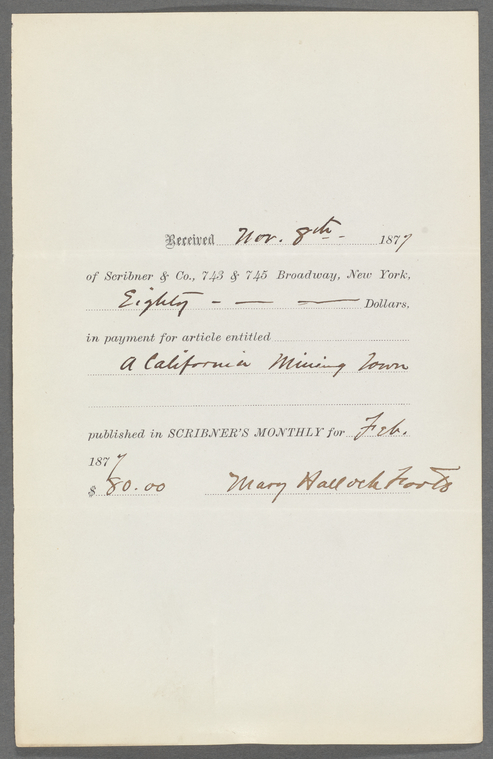 Received Nov. 8th - 1877
of Scribner & Co., 743 & 745 Broadway, New York,
Eighty - — — Dollars,
in payment for article entitled
A California Mining Town
published in SCRIBNER'S MONTHLY for Feb.
1877
$ 80.00 Mary Hallock Foote